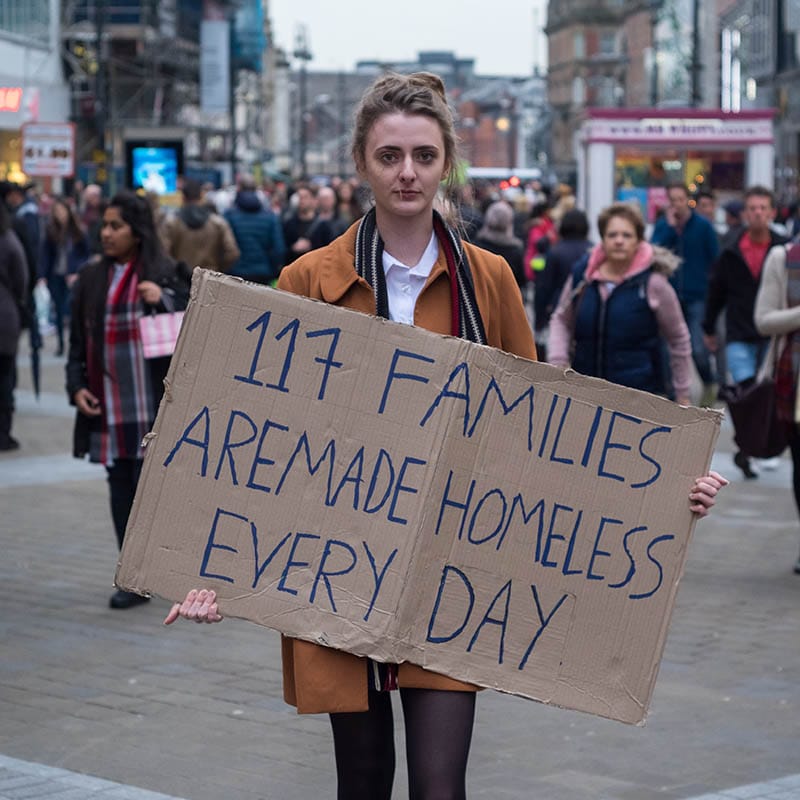 117 FAMILIES
AREMADE HOMELESS
EVERY DAY.